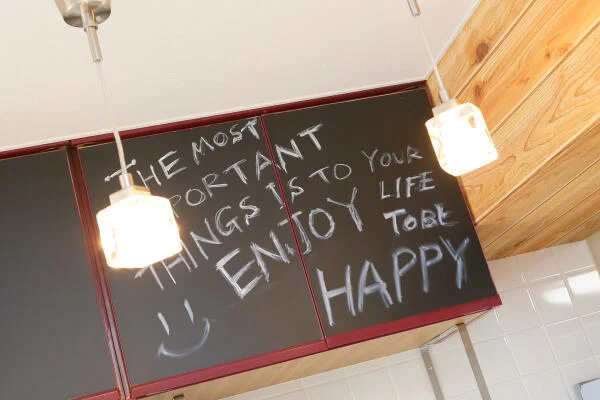 THE MOST
PORTANT
THINGS IS TO
ENJOY
YOUR
LIFE
TO BE
HAPPY